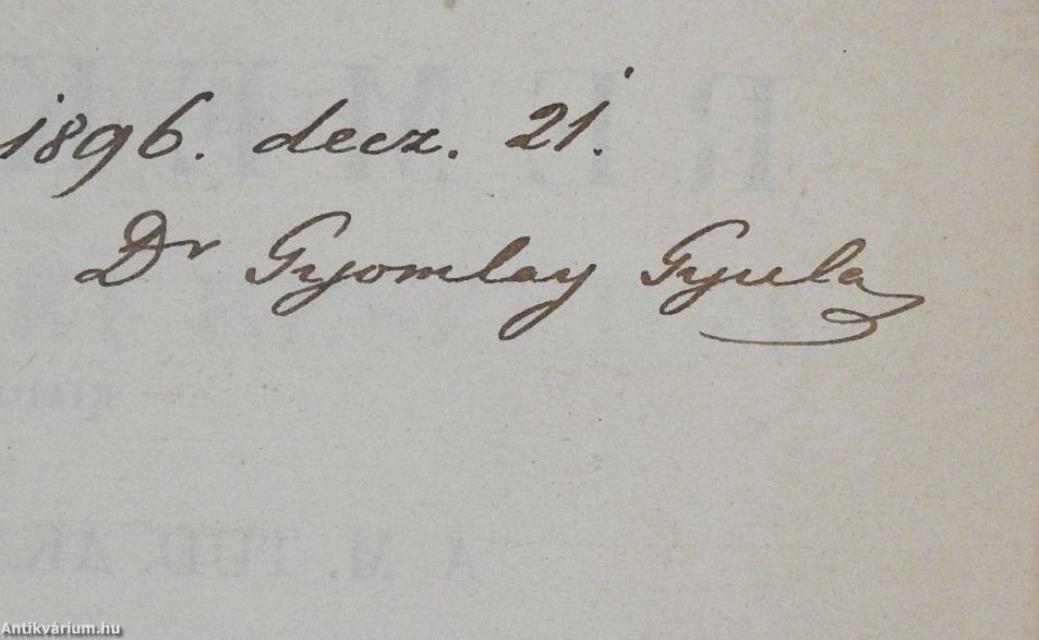 1896. decz. 21.
Dr Gyomlay Gyula
A. M. TUD. AK
Antikvárium.hu